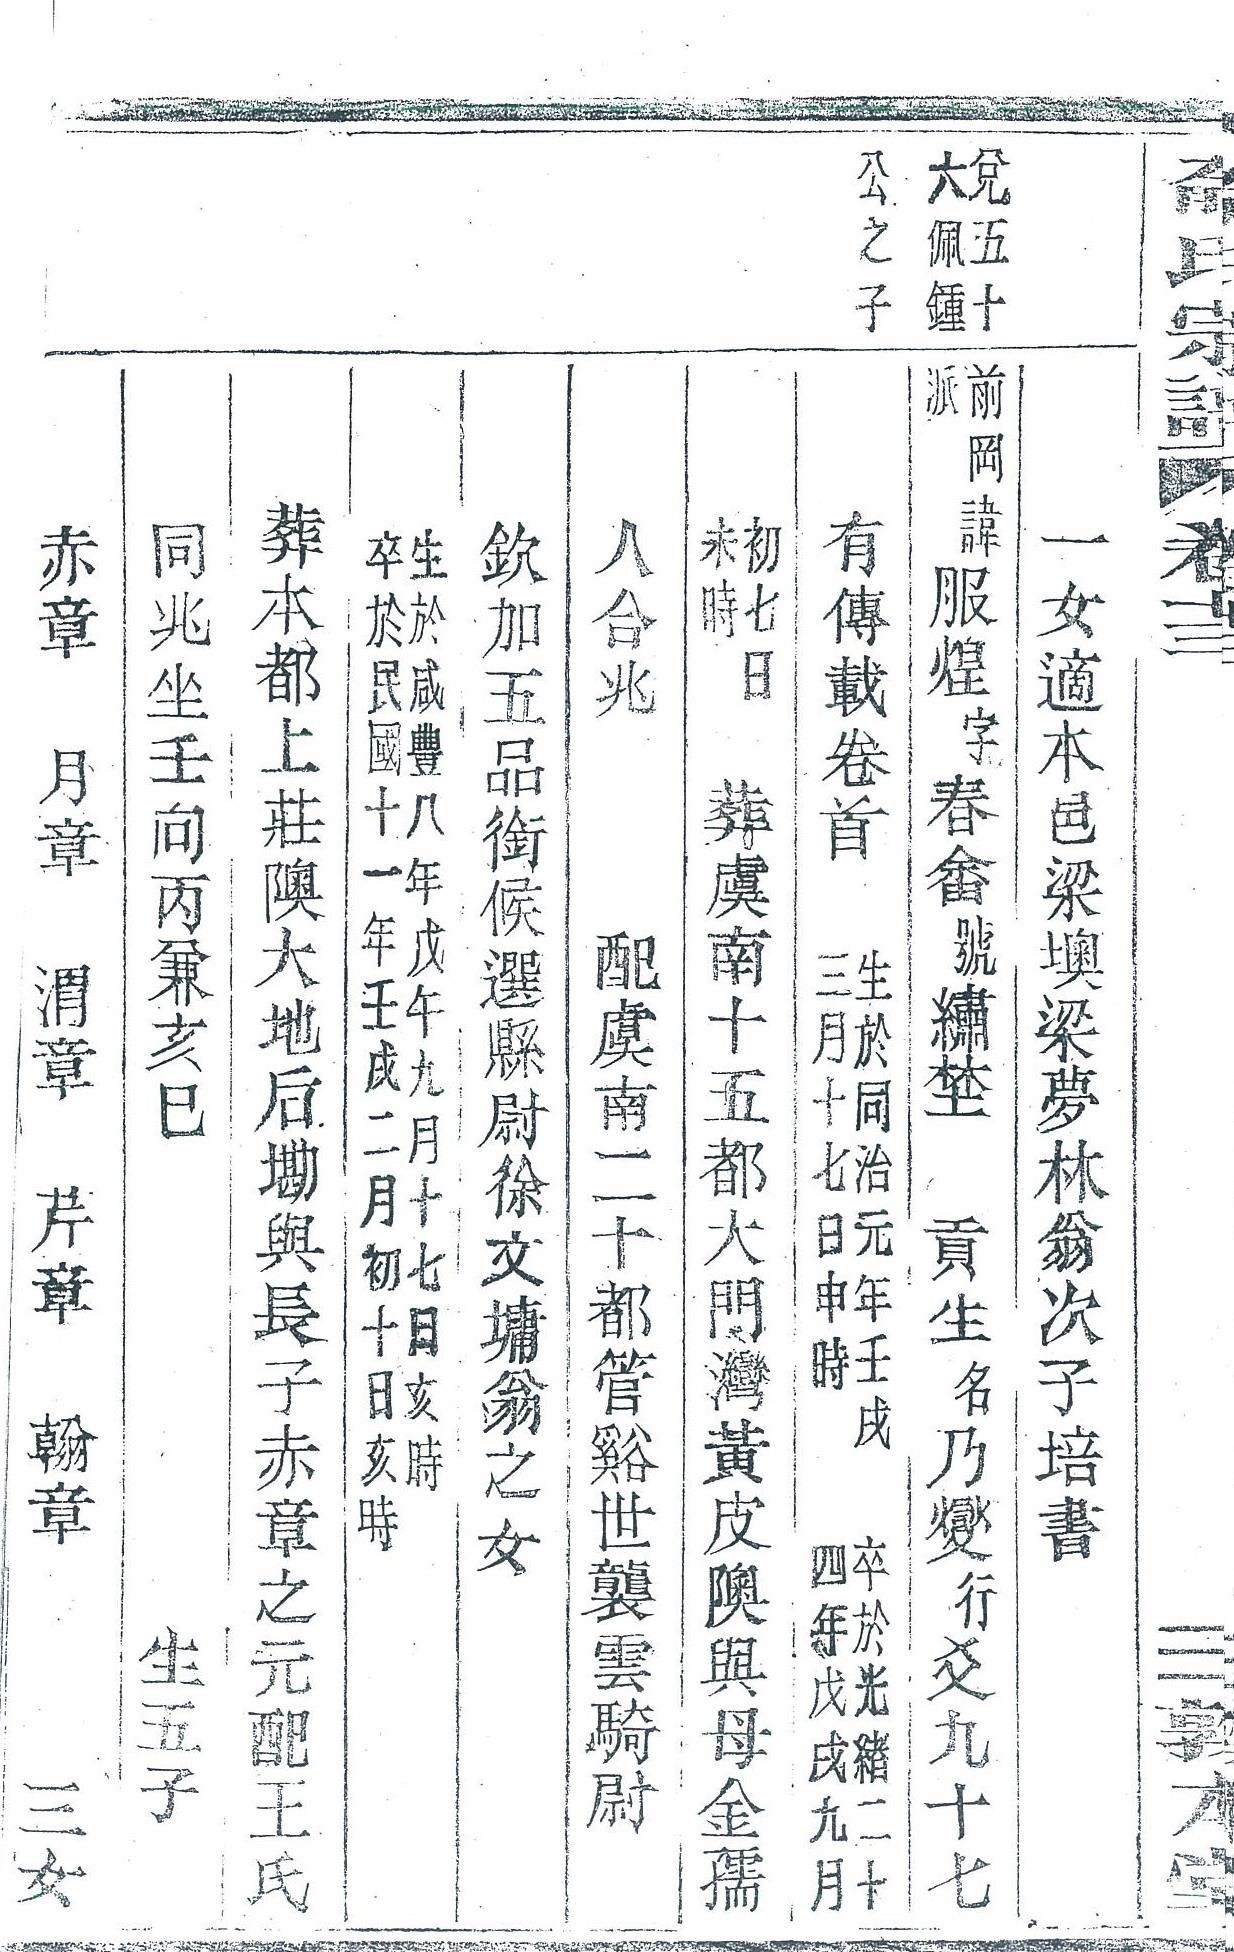 氏宗譜
卷三
敦本堂
一女適本邑梁墺梁夢林翁次子培書
兌五十
六佩鍾
公之子
前岡
派
諱服煌字春畬號繡埜　貢生名乃燮行爻九十七
有傳載卷首
生於同治元年壬戌
三月十七日申時
卒於光緒二十
四年戊戌九月
初七日
未時
葬虞南十五都大門灣黃皮隩與母金孺
人合兆　配虞南二十都管谿世襲雲騎尉
欽加五品銜候選縣尉徐文墉翁之女
生於咸豐八年戊午九月十七日亥時
卒於民國十一年壬戌二月初十日亥時
葬本都上莊隩大地后墈與長子赤章之元配王氏
同兆坐壬向丙兼亥巳　生五子
赤章　月章　渭章　芹章　翰章　三女